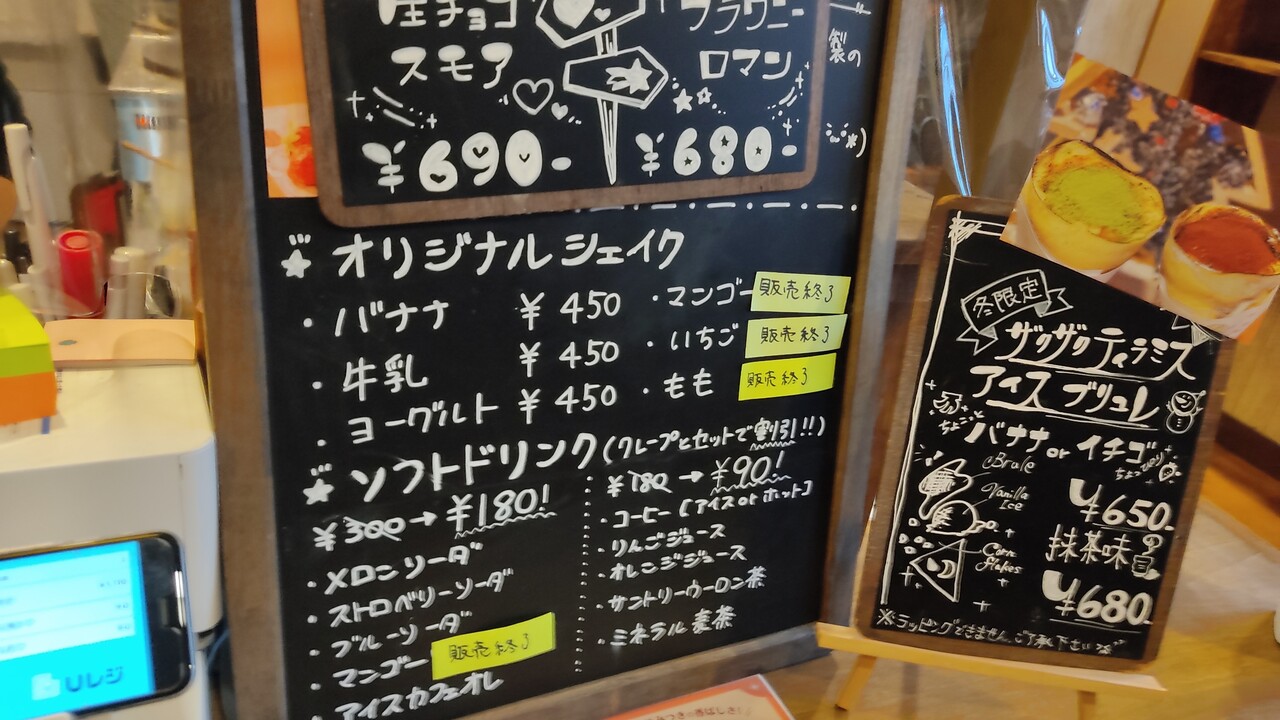 生チョコ
スモア
¥690-
ブラウニー
ロマン
¥680-
製の
オリジナルシェイク
・バナナ ¥450
・牛乳 ¥450
・ヨーグルト ¥450
・マンゴー 販売終了
・いちご 販売終了
・もも 販売終了
ソフトドリンク(クレープとセットで割引!!)
¥300→¥180!
・メロンソーダ
・ストロベリーソーダ
・ブルーソーダ
・マンゴー 販売終了
・アイスカフェオレ
¥180→¥90!
・コーヒー[アイスorホット]
・りんごジュース
・オレンジジュース
・サントリーウーロン茶
・ミネラル麦茶
Uレジ
冬限定
ザクザクティラミス
アイスブリュレ
バナナ or イチゴ
Vanilla
Ice
Corn
flakes
¥650-
抹茶味
¥680-
※ラッピングできません。ご了承下さい